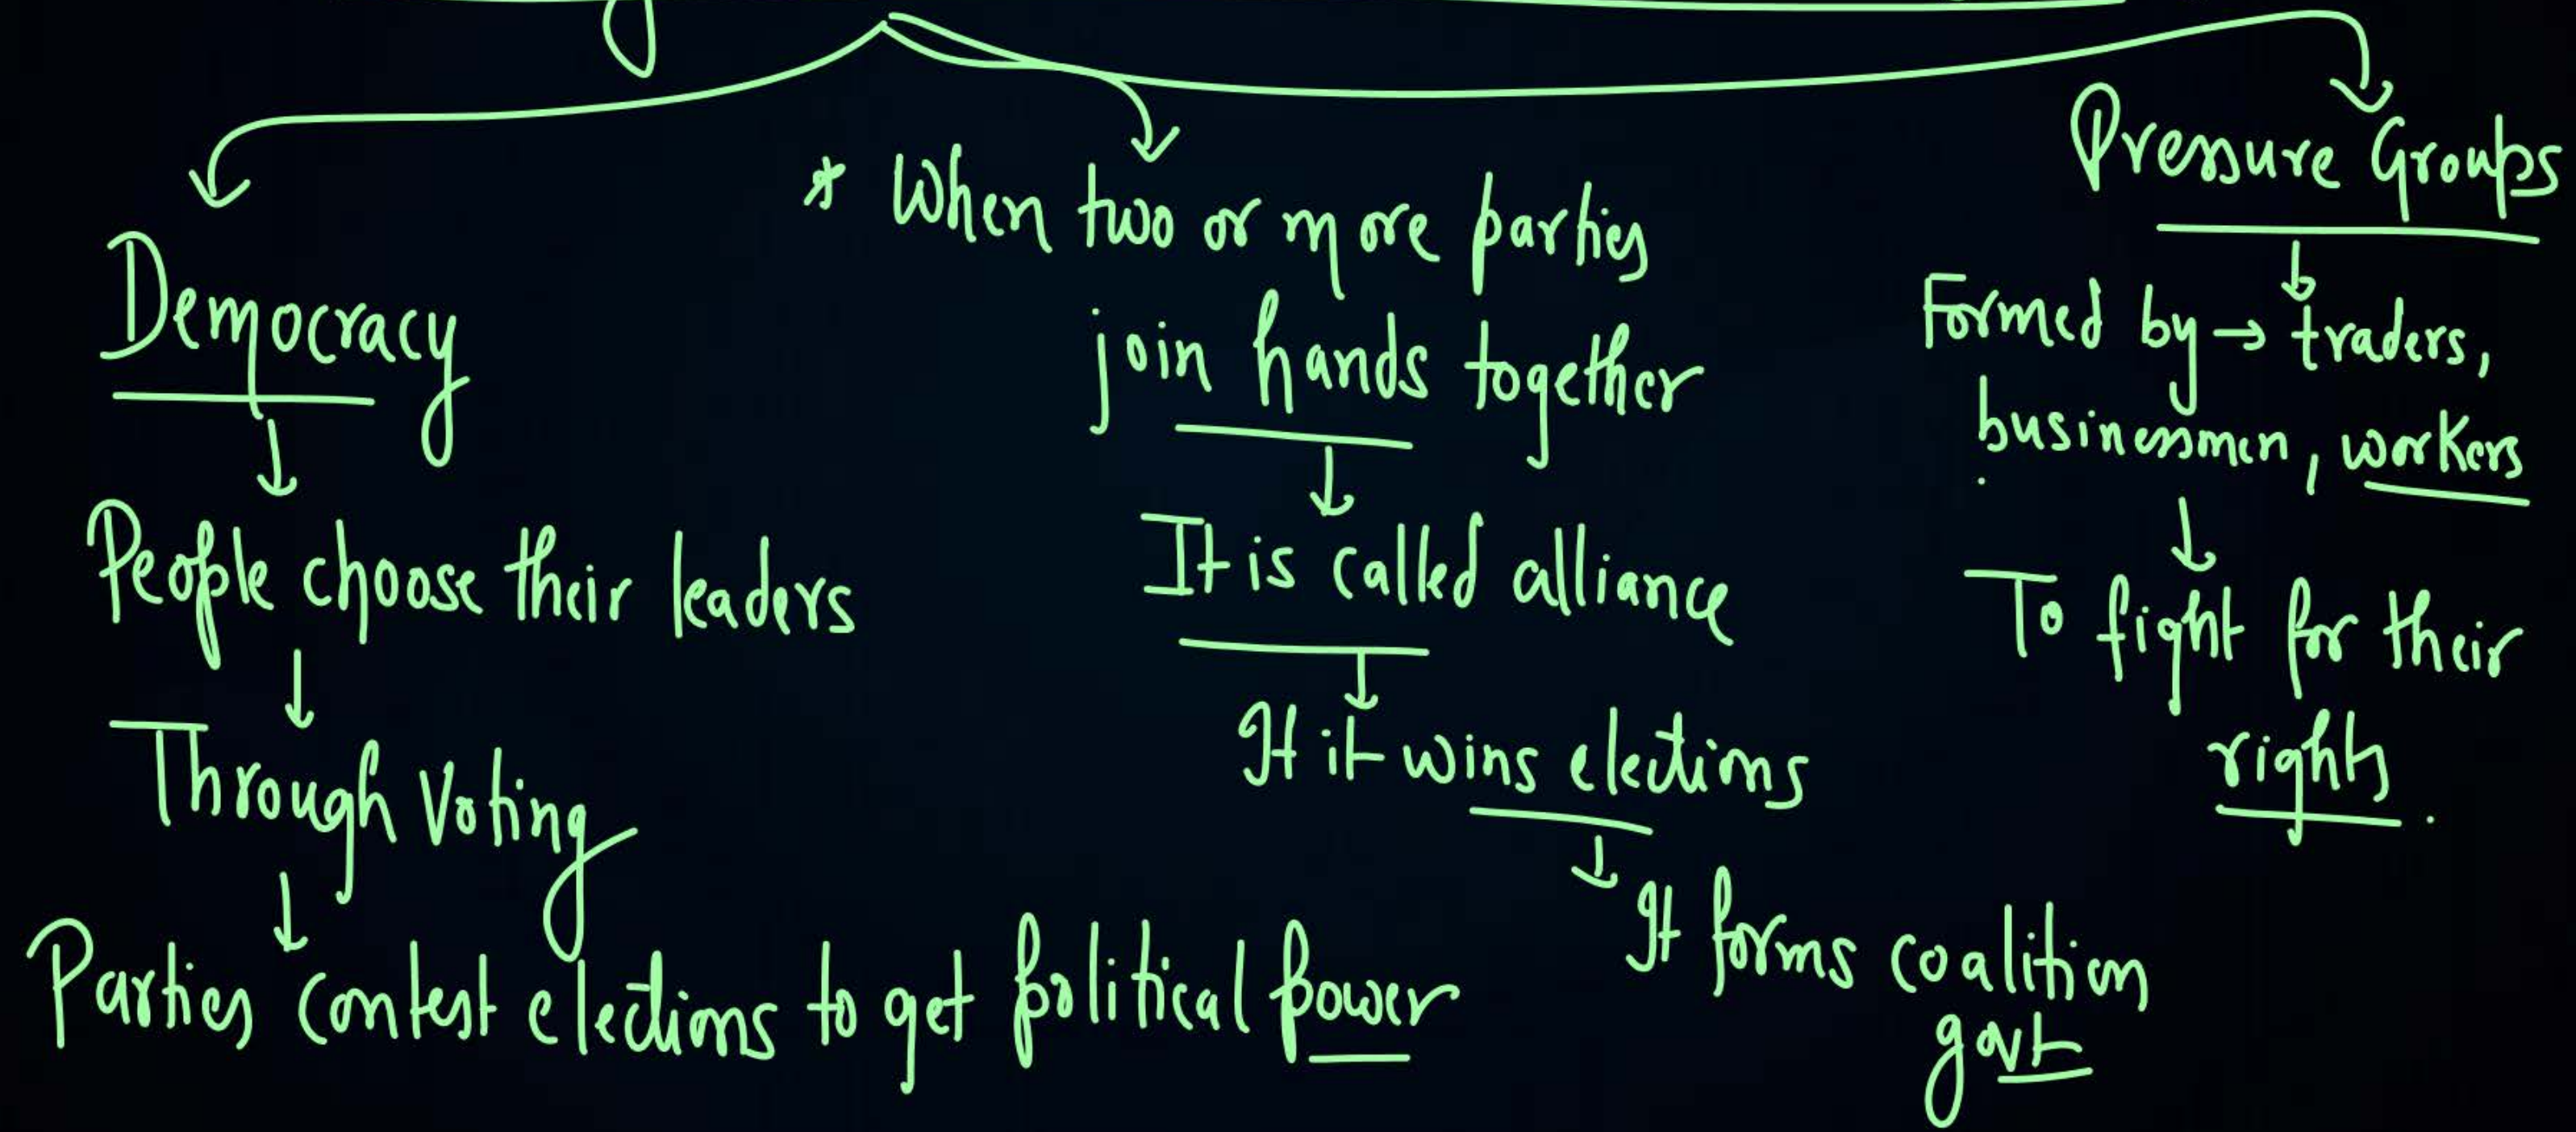 Democracy
↓
People choose their leaders
↓
Through Voting
↓
Parties contest elections to get political power
* When two or more parties
join hands together
↓
It is called alliance
↓
If it wins elections
↓
It forms coalition
govt
Pressure Groups
↓
Formed by → traders,
businessmen, workers
↓
To fight for their
rights.